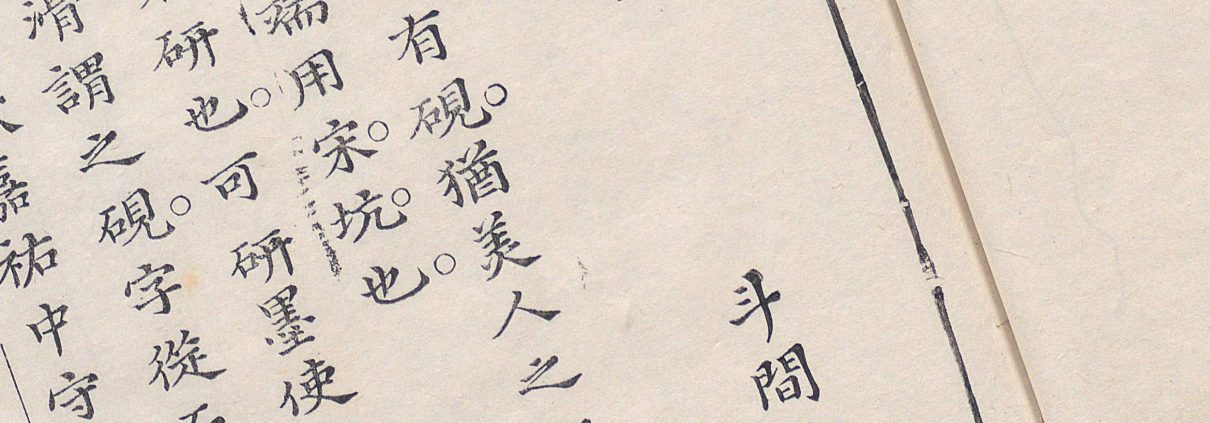 斗間
有硯。猶美人之
端用宋坑。也。
研也。可研墨使
滑謂之硯。字從
嘉祐中守